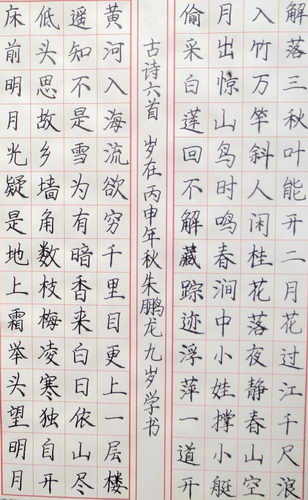 解落三秋叶能开二月花过江千尺浪
入竹万竿斜人闲桂花落夜静春山空
月出惊山鸟时鸣春涧中小娃撑小艇
偷采白莲回不解藏踪迹浮萍一道开
古诗六首 岁在丙申年秋朱鹏龙九岁学书
床前明月光疑是地上霜举头望明月
低头思故乡墙角数枝梅凌寒独自开
遥知不是雪为有暗香来白日依山尽
黄河入海流欲穷千里目更上一层楼